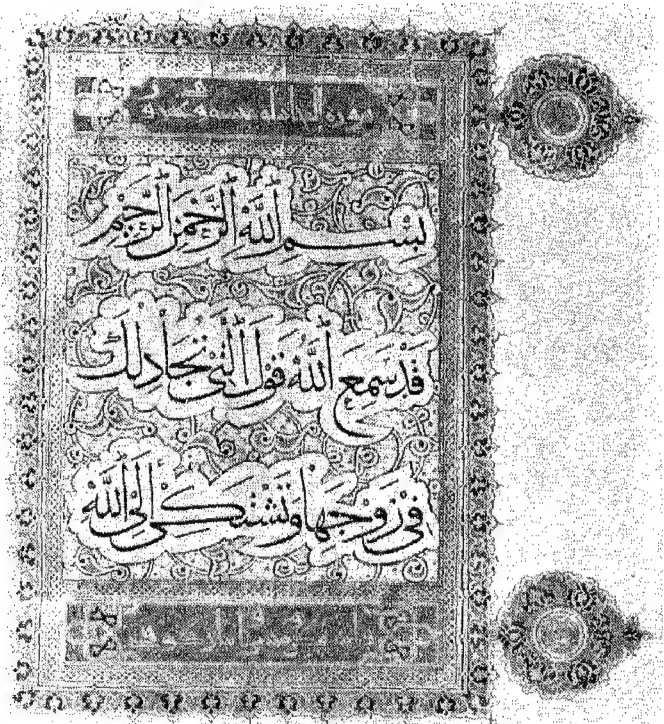 سورة المجادلة
بِسْمِ اللَّهِ الرَّحْمَٰنِ الرَّحِيمِ
قَدْ سَمِعَ اللَّهُ قَوْلَ الَّتِي تُجَادِلُكَ
فِي زَوْجِهَا وَتَشْتَكِي إِلَى اللَّهِ